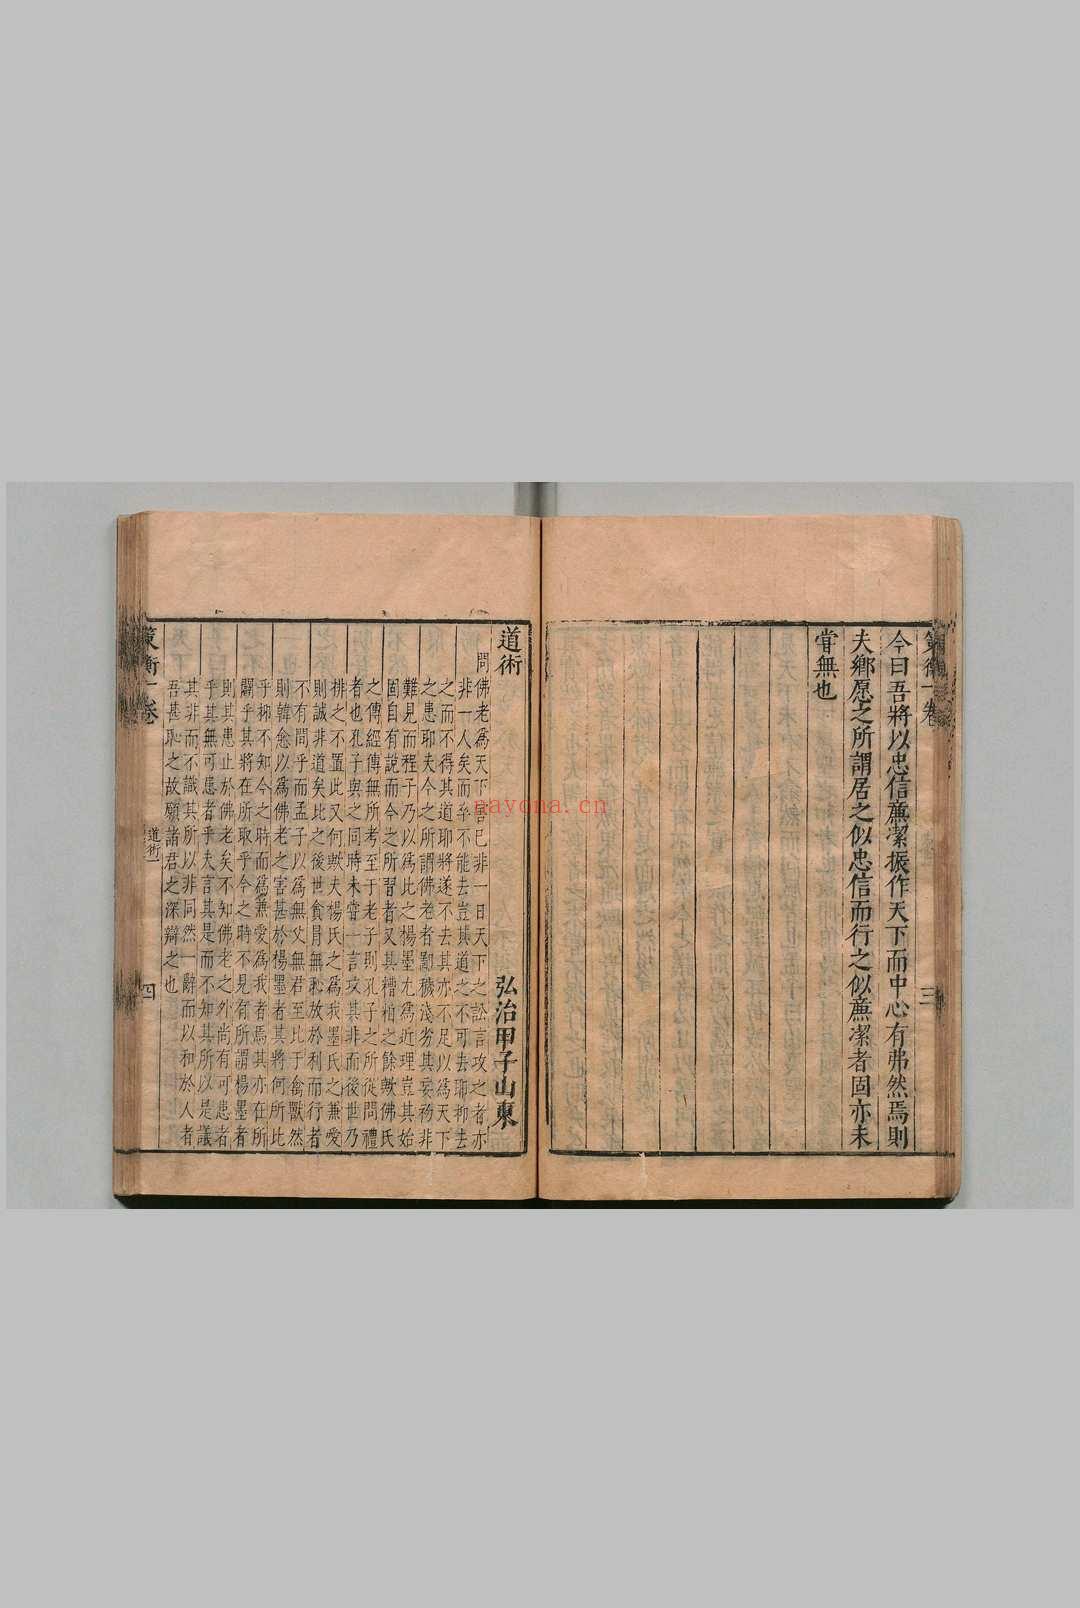 今曰吾將以忠信廉潔振作天下而中心有弗然焉則
夫鄉愿之所謂居之似忠信而行之似廉潔者固亦未
嘗無也
策衡一卷
三
道術
弘治甲子山東
問佛老爲天下害已非一日天下之訟言攻之者亦
非一人矣而卒不能去豈其道之不可去耶抑去
之而不得其道耶將遂不去其亦不足以爲天下
之患耶夫今之所謂佛老者鄙穢淺劣其妄初非
難見而程子乃以爲比之楊墨尤爲近理豈其始
固自有說而今之所習者又其糟粕之餘歟佛氏
之傳經傳無所考至于老子則孔子之所從問禮
者也孔子與之同時未嘗一言攻其非而後世乃
排之不置此又何歟夫楊氏之爲我墨氏之兼愛
則誠非道矣比之後世貪冒無恥放於利而行者
不有間乎而孟子以爲無父無君至比于禽獸然
則韓愈以爲佛老之害甚於楊墨者其將何所比
乎抑不知今之時而爲兼愛爲我者焉其亦在所
闢乎其將在所取乎今之時不見有所謂楊墨者
則其患止於佛老矣不知佛老之外尚有可患者
乎其無可患者乎夫言其是而不知其所以是議
其非而不識其所以非同然一辭而以和於人者
吾甚恥之故願諸君之深辯之也
策衡一卷
道術一
四
nayona.cn